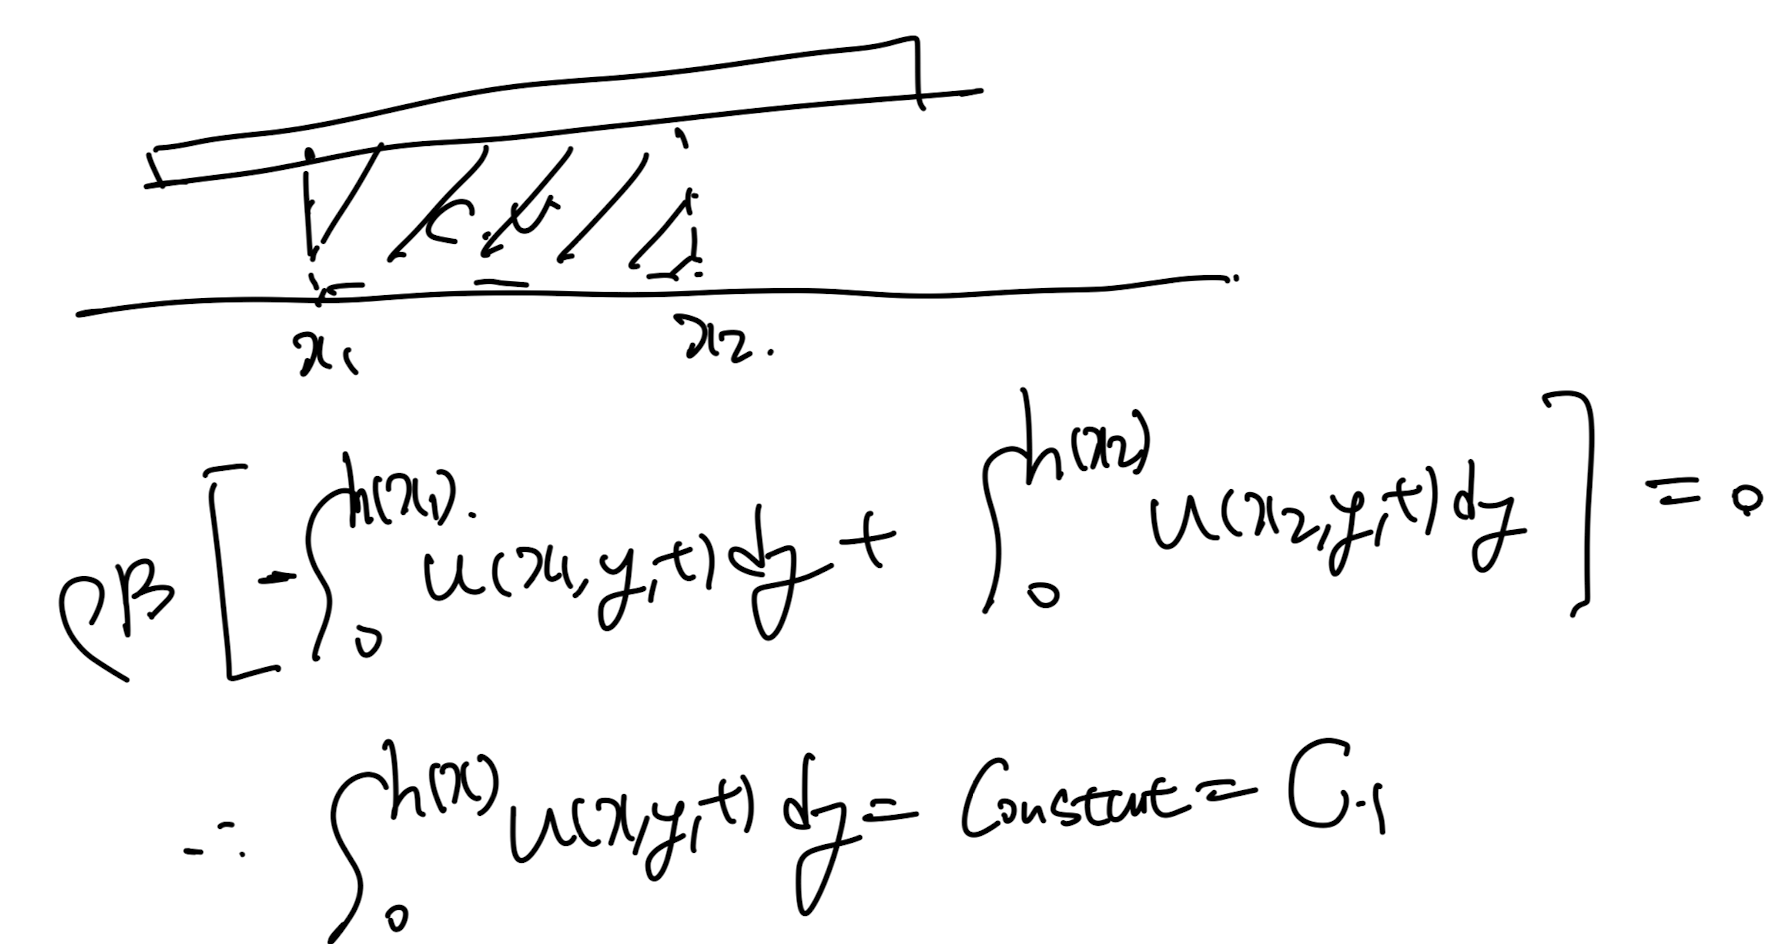 C.V
x₁ x₂.
ρB [ -∫₀^{h(x₁).} u(x₁,y,t) dy + ∫₀^{h(x₂)} u(x₂,y,t) dy ] = 0
∴ ∫₀^{h(x)} u(x,y,t) dy = Constant = C₁